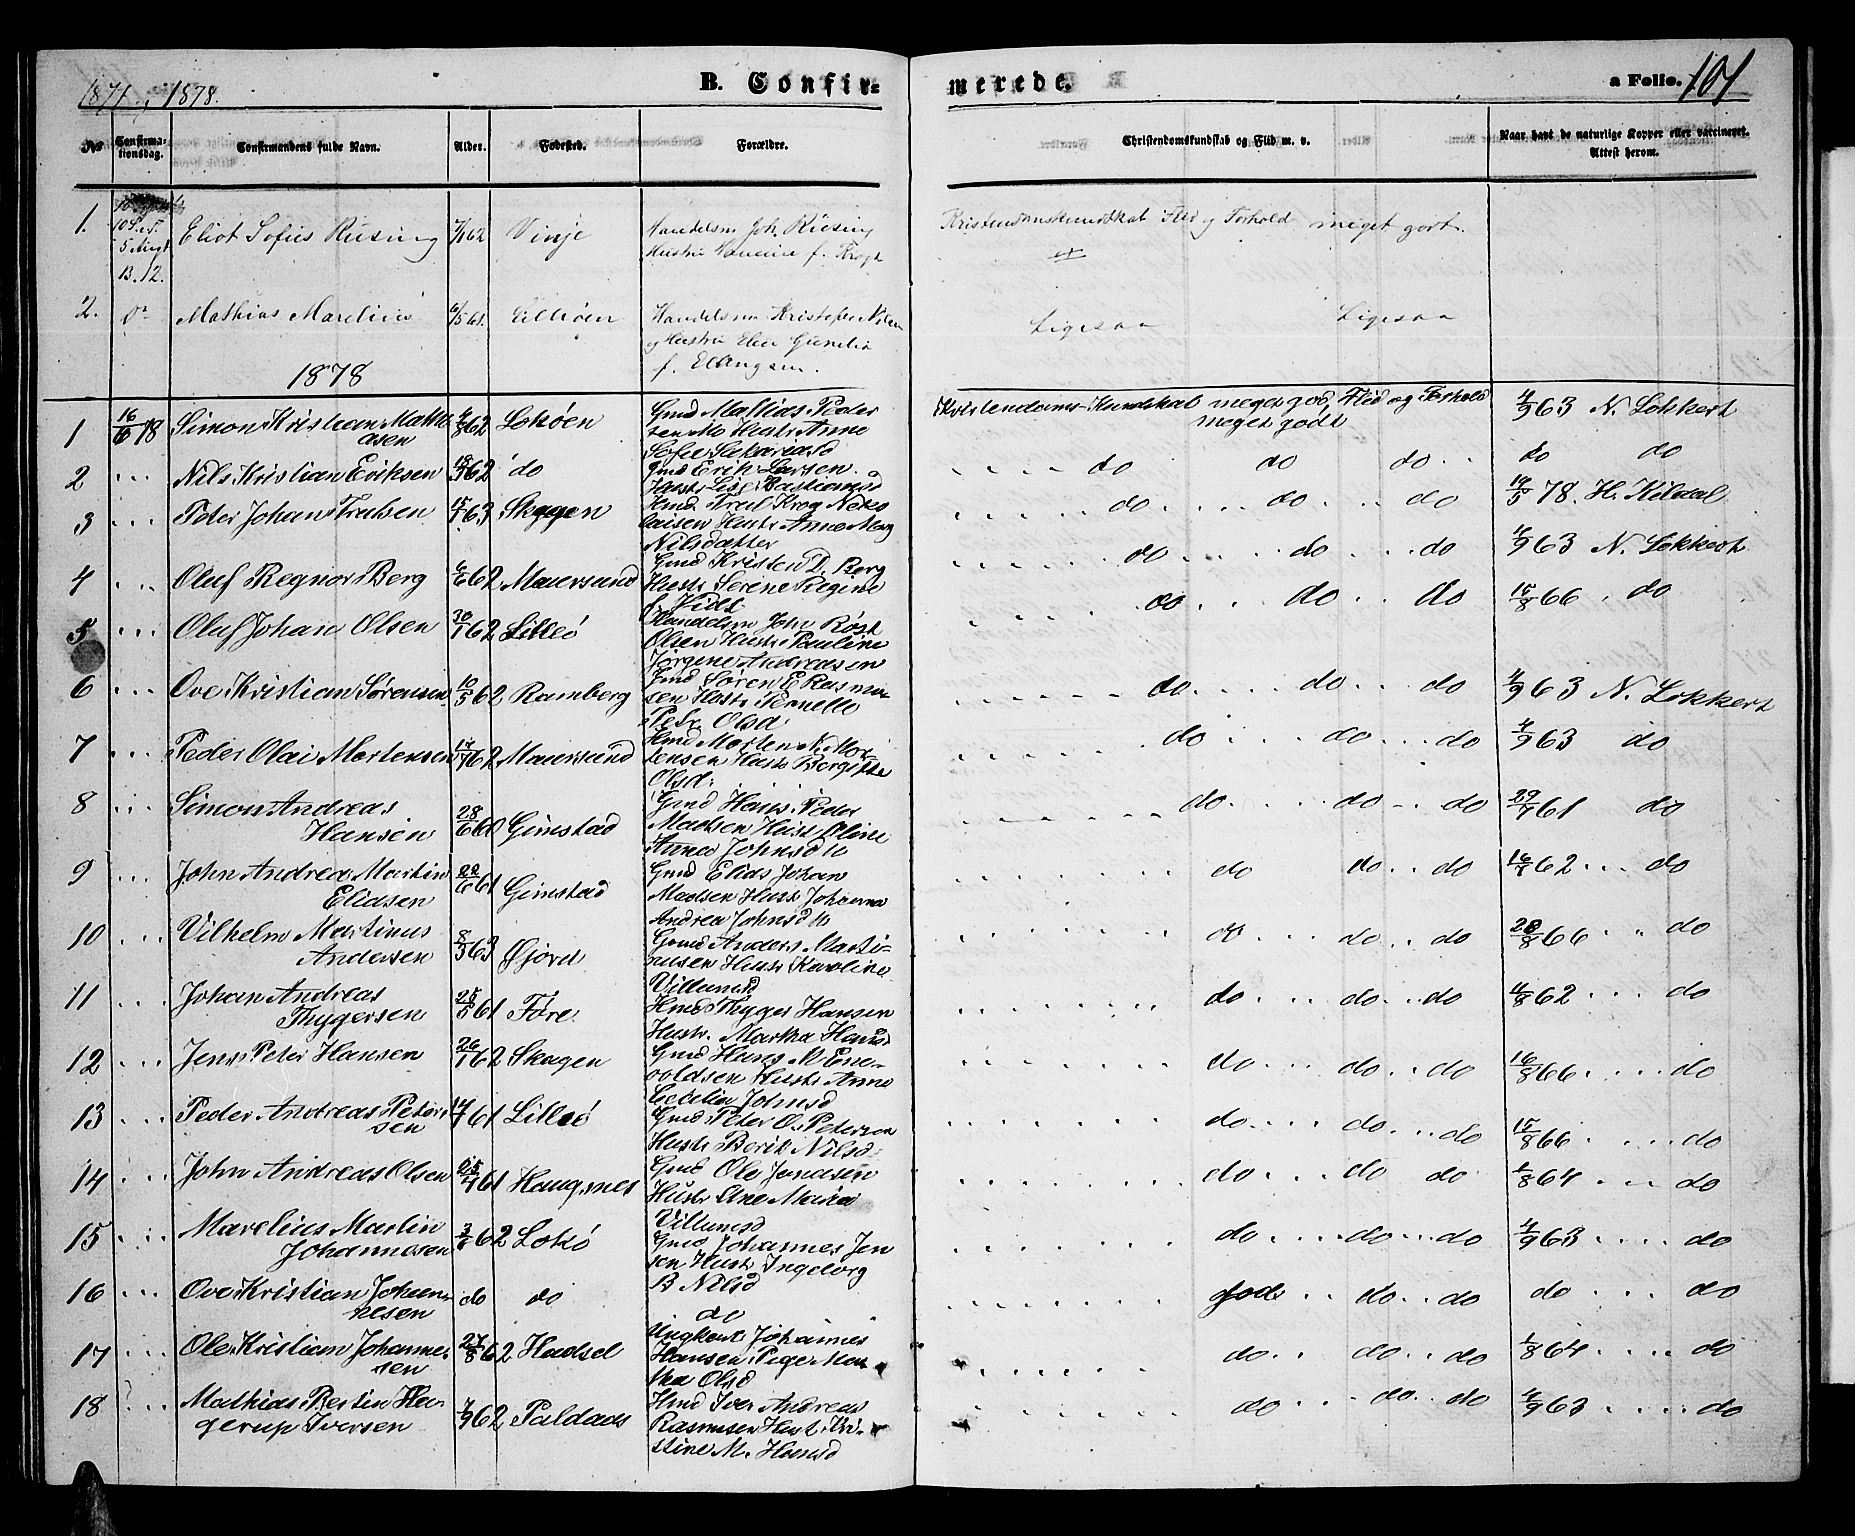 1877, 1878.
B. Confir-
merede.
a Folio. 101
No
Confirma-
tionsdag.
Confirmandens fulde Navn.
Alder.
Fødested.
Forældre.
Christendomskundskab og Flid m. v.
Naar havt de naturlige Kopper eller vaccineret.
Attest herom.
1. Eliot Sofus Rusing 7/1 62 Vinje Handelsm Joh. Rusing
Hustru f. Krogh
Kristendomskundskab Flid og Forhold meget godt.
2. do Mathias Marelius 6/5 61. Lilleøen Handelsm Kristofer Nilsen
og Hustru Elen
f. Ellingsen.
Ligesaa Ligesaa
1878
1 16/6 78 Simon Kristian Mathi
asen 62 Loksøen Gmd Mathias Peder
sen M Hustr Anne
Sofie Sakariasd
Kristendoms-Kundskab meget god, Flid og Forhold
meget godt
4/9 63 N. Lokkert
2 Nils Kristian Eriksen 62 do Gmd Erik Larsen.
Hustr Lise Bastiansd
do do do do do
3 Peter Johan Trulsen 63 Skagen Hmd. Truls Krog Niko
laisen Hustr Anne Marg
Nilsdatter
do do do 19/5 78. H. Kildal
4 Oluf Regnor Berg 62 Maursund Gmd Kristen D. Berg
Hustr Serene Regine
do do do 4/9 63 N. Lokkert
5 Oluf Johan Olsen 30/1 62 Lilleø Handelsm John Røst
Olsen Hustr Pauline
Jørgine Andreasen
do do do 15/8 66 do
6 Ove Kristian Sørensen 10/5 62 Ramberg Gmd Søren E Rasmu
sen Hustr Pernelle
Petr. Olsd.
do do do 4/9 63 N. Lokkert
7 Peder Olai Mortensen 62 Maursund Hmd Morten N. Mor
tensen Hustr Bergitte
Olsd:
do do do 4/9 63 do
8 Simon Andreas
Hansen 28/6 60 Gimstad Gmd Hans Peder
Madsen Hust Oline
Anna Johnsd
do do do 61 do
9 John Andrea Martin
Eliasen 61 Gimstad Gmd Elias Johan
Madsen Hustr Johanna
Andrea Johnsd
do do do 62 do
10 Vilhelm Martinus
Andersen 8/3 63 Øjord Gmd Anders Marti-
nusen Hustr Karoline
Villumsd
do do do 28/8 66 do
11 Johan Andreas
Thygersen 25/5 61 Føre Hmd Thyger Hansen
Hustr. Martha Hansd
do do do 4/8 62 do
12 Jens Peter Hansen 26/1 62 Skagen Gmd Hans M Ene-
voldsen Hustr Anne
Cecilia Johnsd
do do do 16/8 66 do
13 Peder Andreas Peter
sen 61 Lilleø Gmd Peter O. Petersen
Hustr Berit Nilsd
do do do 15/8 66 do
14 John Andreas Olsen 61 Haugsnes Gmd Ole Jonasen
Hustr Ane Maria
Villumsd
do do do 1/8 64 do
15 Marelius Martin
Johannesen 3/6 62 Loksø Gmd Johannes Jen
sen Hustr Ingeborg
B Nilsd
do do do 4/9 63 do
16 Ove Kristian Johan-
nesen do do do
god do do do do
17 Ole Kristian Johanne
sen 27/8 62 Hadsel Ungkarl Johannes
Hansen Pige Mar
tha Olsd
do do do 1/8 64 do
18 Mathias Bertin Ha-
gerup Iversen 62 Paldads Hmd Iver Andreas
Rasmusen Hust. Kri-
stine M. Hansd
do do do 4/9 63 do